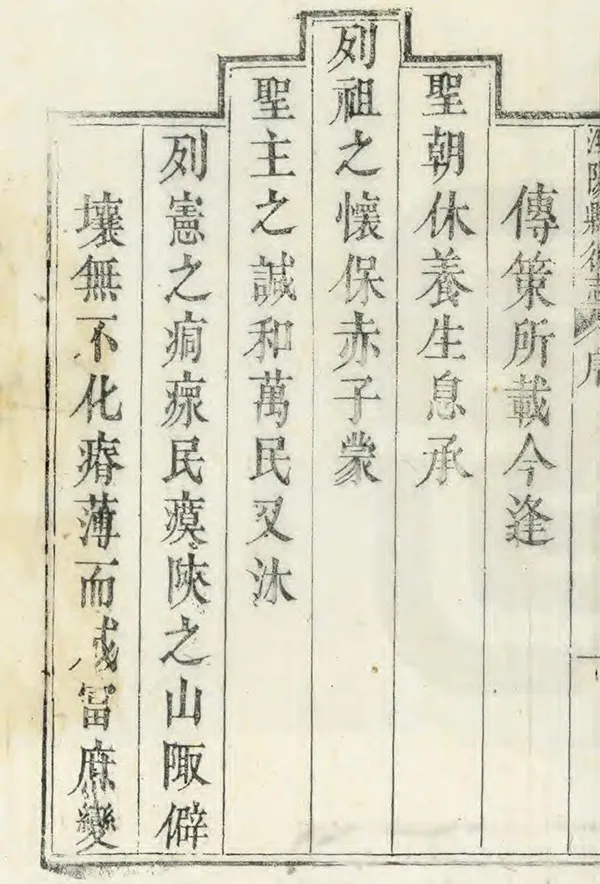 洵陽縣續志 序
傳策所載今逢
聖朝休養生息承
列祖之懷保赤子蒙
聖主之誠和萬民又沐
列憲之痌瘝民瘼陝之山陬僻
壤無不化瘠薄而成富庶變